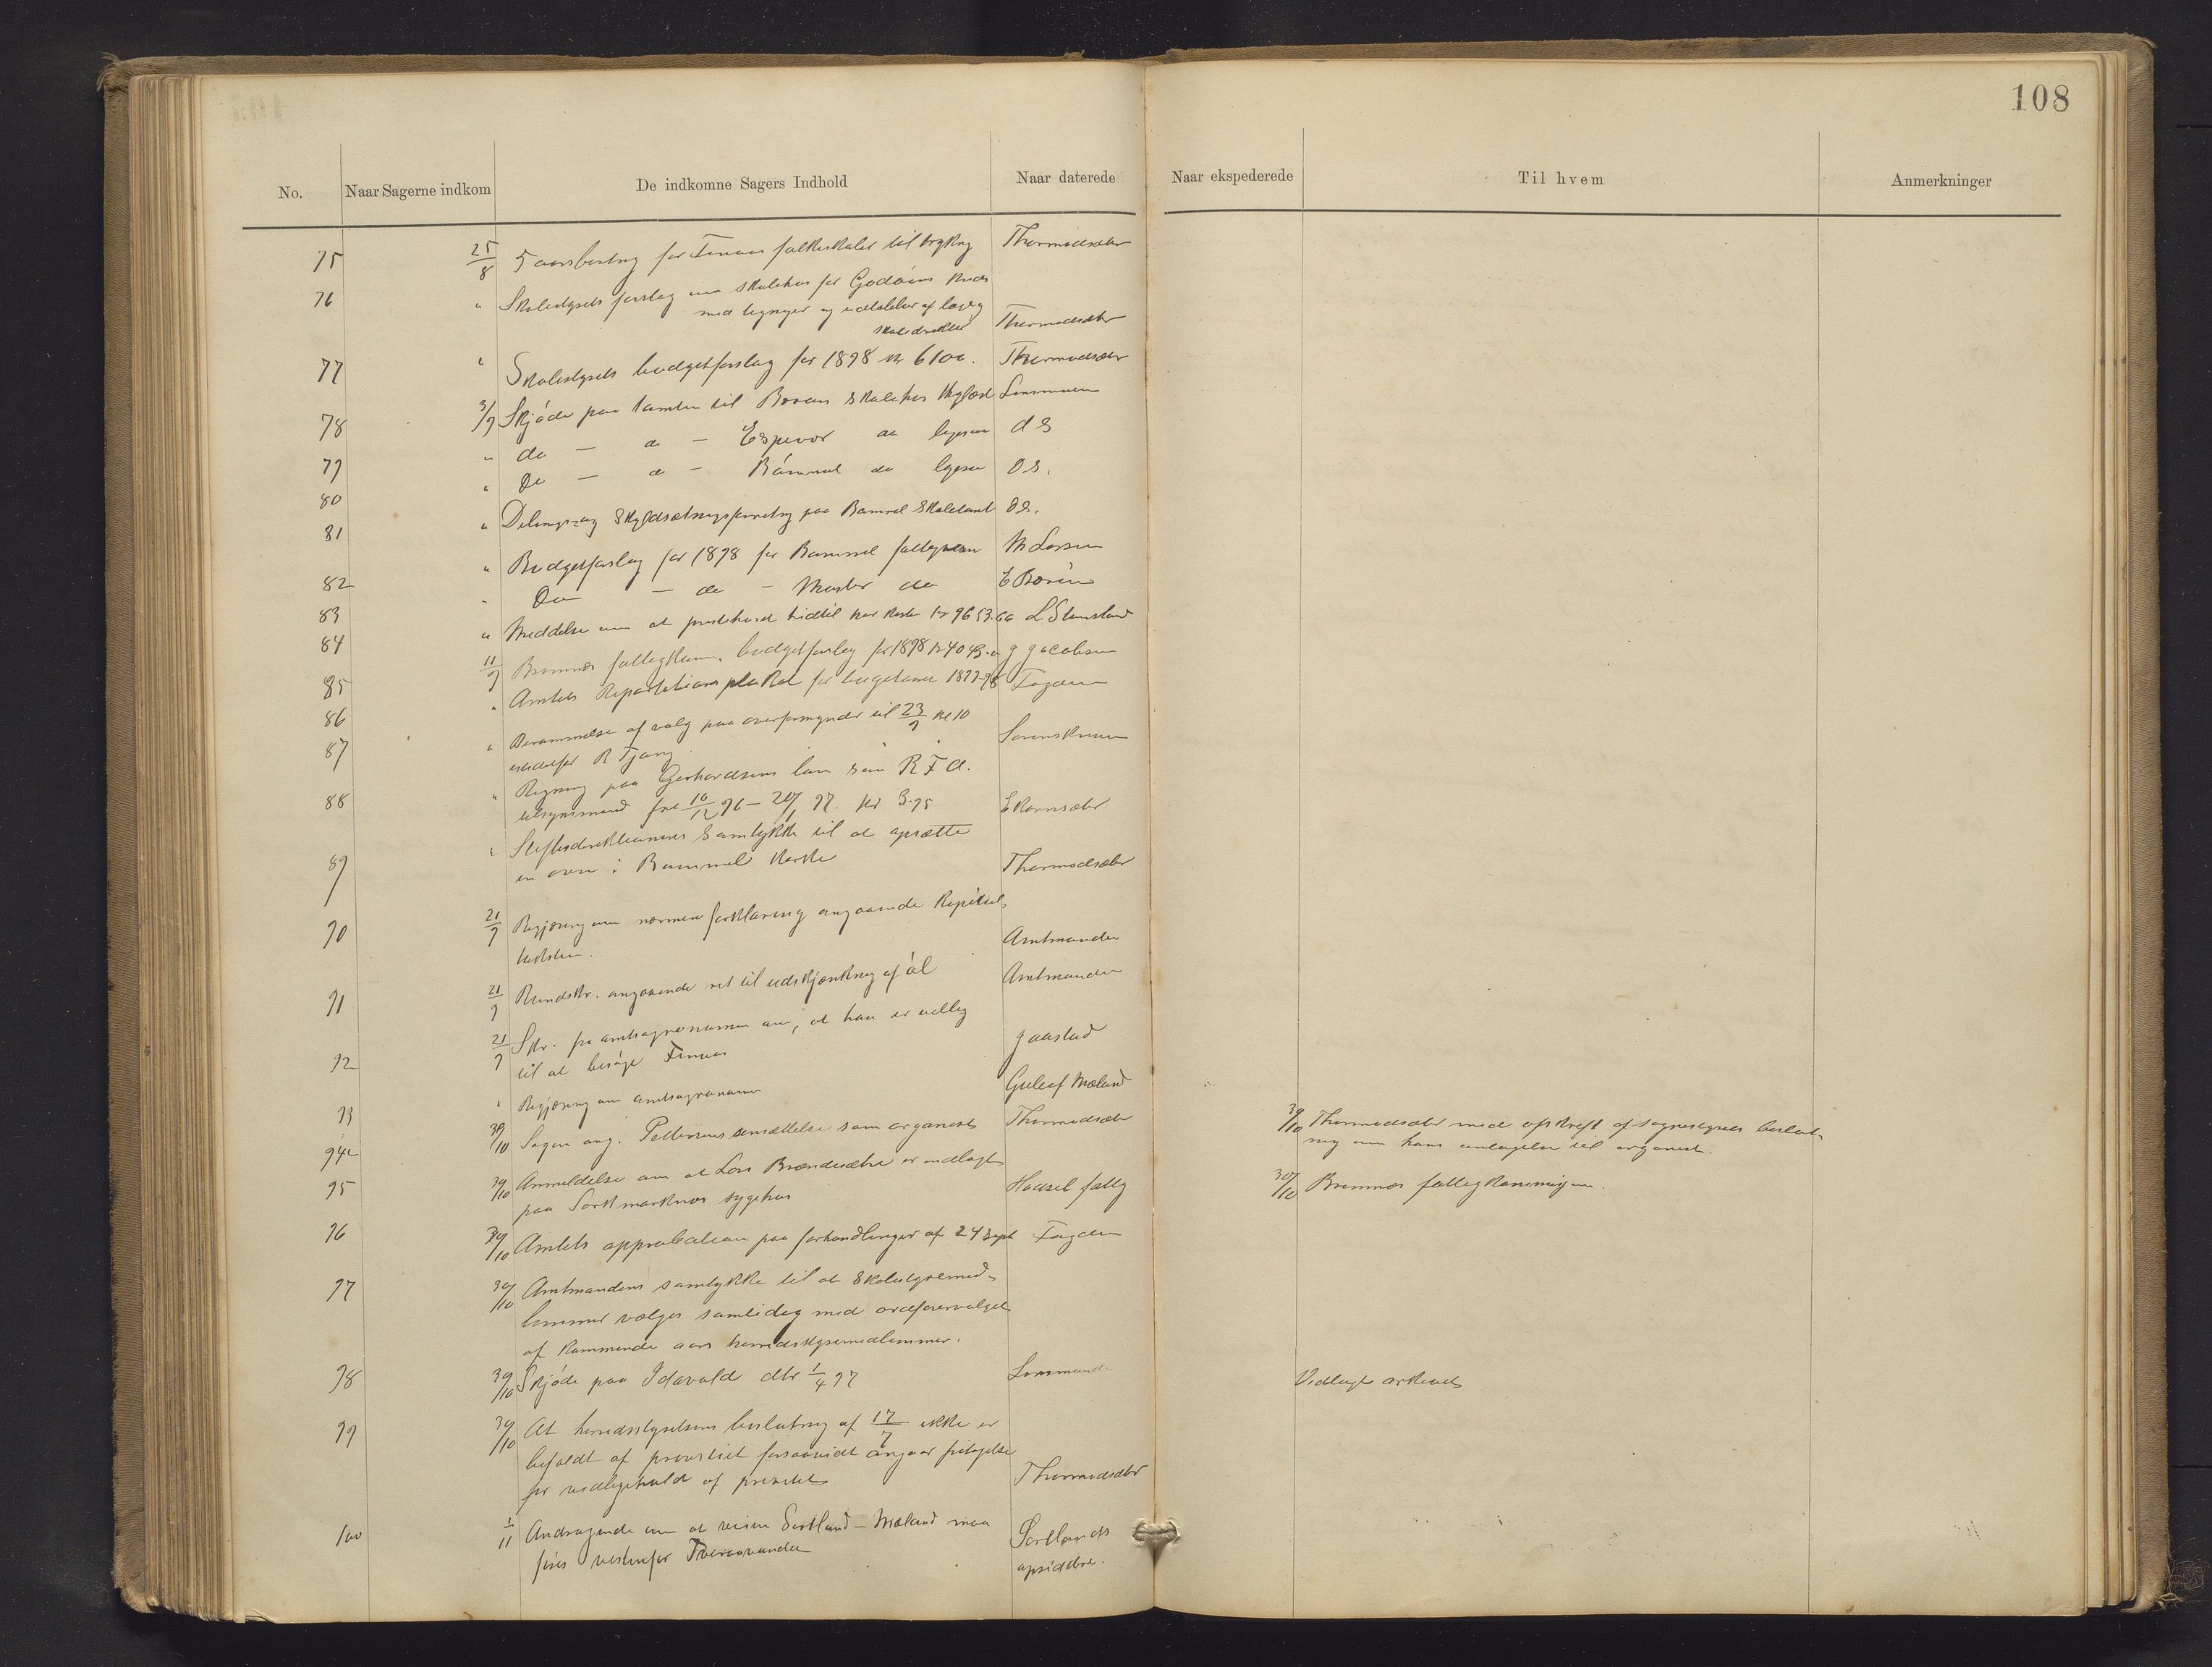 108
No. Naar Sagerne indkom De indkomne Sagers Indhold Naar daterede Naar ekspederede Til hvem Anmerkninger
75 25/8 5 aarsberetng for Finnaas folkeskoler til trykng Thormodsæter
76 " Skolestyrets forslag om skolehus for Godøens kreds
med tegnger og udtalelser af læge og
skoledirektør Thormodsæter
77 " Skolestyrets budgetforslag for 1898 kr 6100. Thormodsæter
78 3/9 Skjøde paa tomten til skolehus Lensmanen
79 " do — do — Espevær do ds
80 " Do — do — Bømmel do Ds.
81 " Delings og Skyldsætningsforretng paa Bømmel skoletomt Ds.
82 " Budgetforslag for 1898 for Bømmel fattigvæsen M Larsen
83 " Do — do — Moster do E Børøen
84 " Meddelse om at prestehuset hidtil har kostet kr 9653.60 L Stensland
85 11/9 Bremnæs fattigkom. budgetforslag for 1898 kr 4043. J Jacobsen
86 " Amtets Repartitions plakat for budgetaaret 1897-98 Fogden
87 " Berammelse af valg paa overformynder til 23/9 kl 10
istedetfor R Tjong Sorenskriveren
88 " Regning paa Gerhardsens løn som R F d.
tilsynsmand fra 16/12 96 – 20/1 97. kr 3.75 E Kornsæter
89 " Stiftsdirektionenes samtykke til at opsætte
en ovn i Bømmel kirke Thormodsæter
90 21/9 Begjæring om nærmere forklaring angaaende Kapitel
Amtmanden
91 21/9 Rundskr. angaaende ret til udskjænkning af øl Amtmanden
92 21/9 Skr. fra amtsagronomen om, at han er villig
til at besøge Finnaas Jaastad
93 " Begjæring om amtsagronomen Guleif Mæland
94 30/10 Sagen ang. Pettersens ansættelse som organist Thormodsæter 30/10 Thormodsæter med afskrift af sognestyrets beslut-
ning om hans antagelse til organist.
95 30/10 Anmeldelse om at Lars Brændesæter er indlagt
paa Sortmarknæs sygehus Hadsel fattig 30/10 Bremnæs fattigkommisjon.
96 30/10 Amtets approbation paa forhandlinger af 24 Sept Fogden
97 30/10 Amtmandens samtykke til at Skolestyremed-
lemmer vælges samtidig med ordførervalget
af kommende aars herredsstyremedlemmer.
98 30/10 Skjøde paa Idavold dtr 1/4 97 Lensmanden Vedlagt arkivet
99 30/10 At herredsstyrelsens beslutning af 17/7 ikke er
befaldt af provstiet forsaavidt angaar fritagelse
for vedligehold af prestet Thormodsæter
100 1/11 Andragende om at veien Sortland – Mæland maa
føres vestenfor Tveravandet Sortlands
opsiddere.